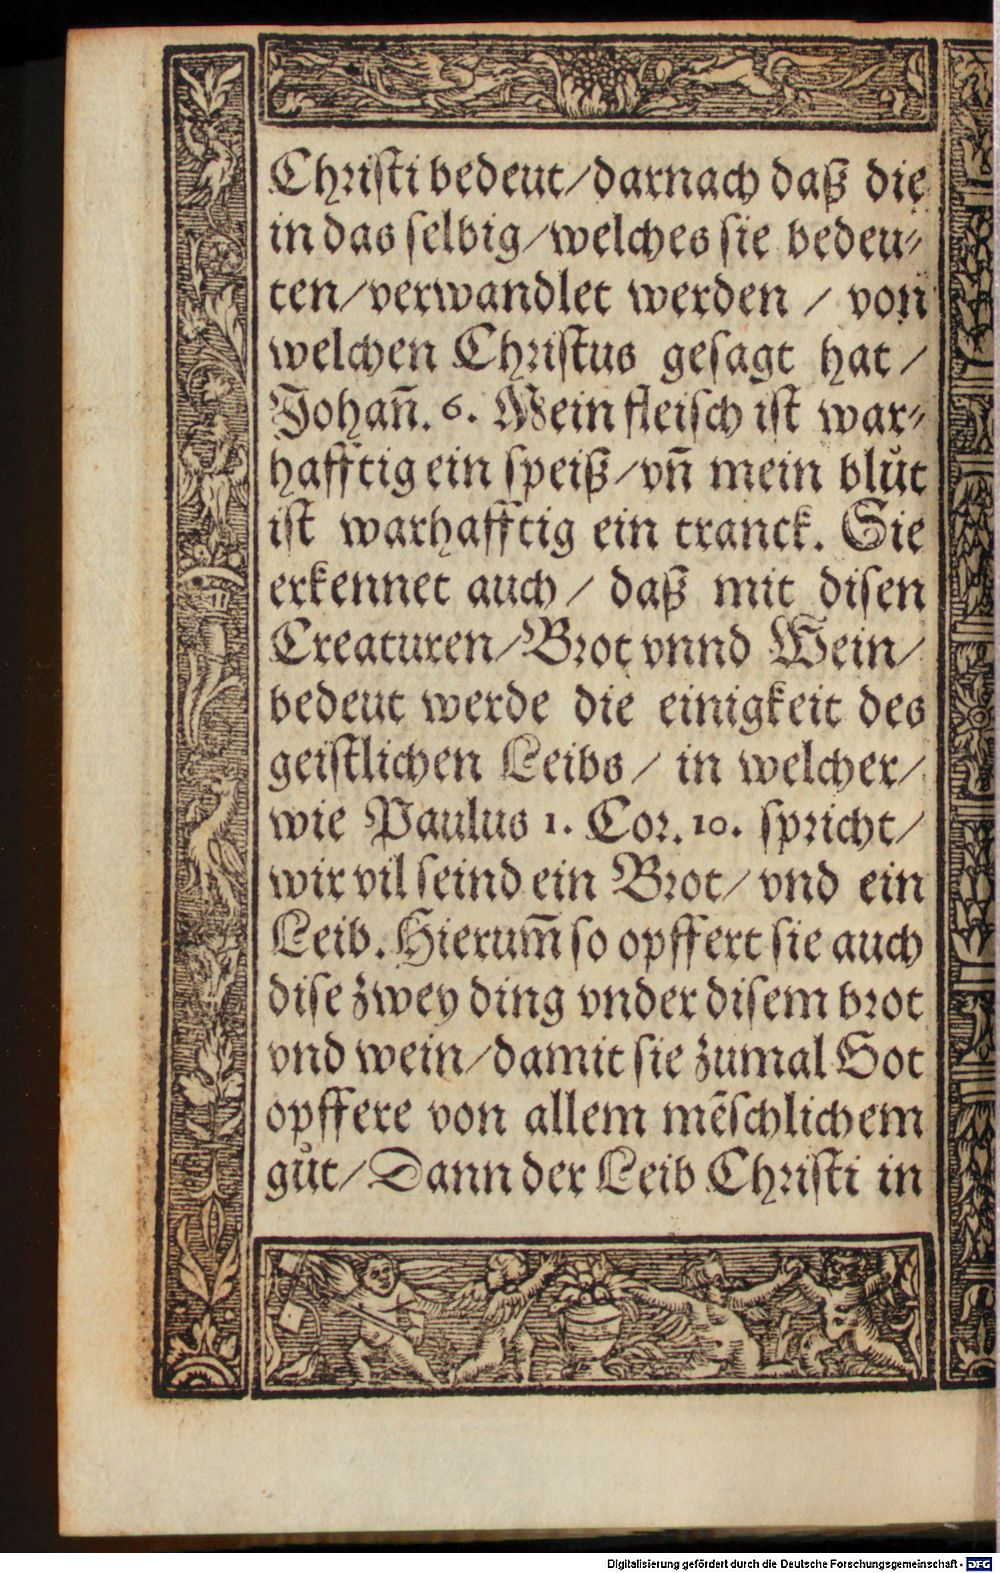 Chriſti bedeut/darnach daß die
in das ſelbig/welches ſie bedeu⸗
ten/verwandlet werden / von
welchen Chriſtus geſagt hat /
Johañ. 6. Mein fleiſch iſt war⸗
hafftig ein ſpeiß/vñ mein blůt
iſt warhafftig ein tranck. Sie
erkennet auch / daß mit diſen
Creaturen/Brot vnnd Wein/
bedeut werde die einigkeit des
geiſtlichen Leibs / in welcher/
wie Paulus 1. Cor. 10. ſpricht/
wir vil ſeind ein Brot/ vnd ein
Leib. Hierum̃ ſo opffert ſie auch
diſe zwey ding vnder diſem brot
vnd wein/damit ſie zumal Got
opffere von allem mẽſchlichem
gůt/Dann der Leib Chriſti in
Digitalisierung gefördert durch die Deutsche Forschungsgemeinschaft - DFG